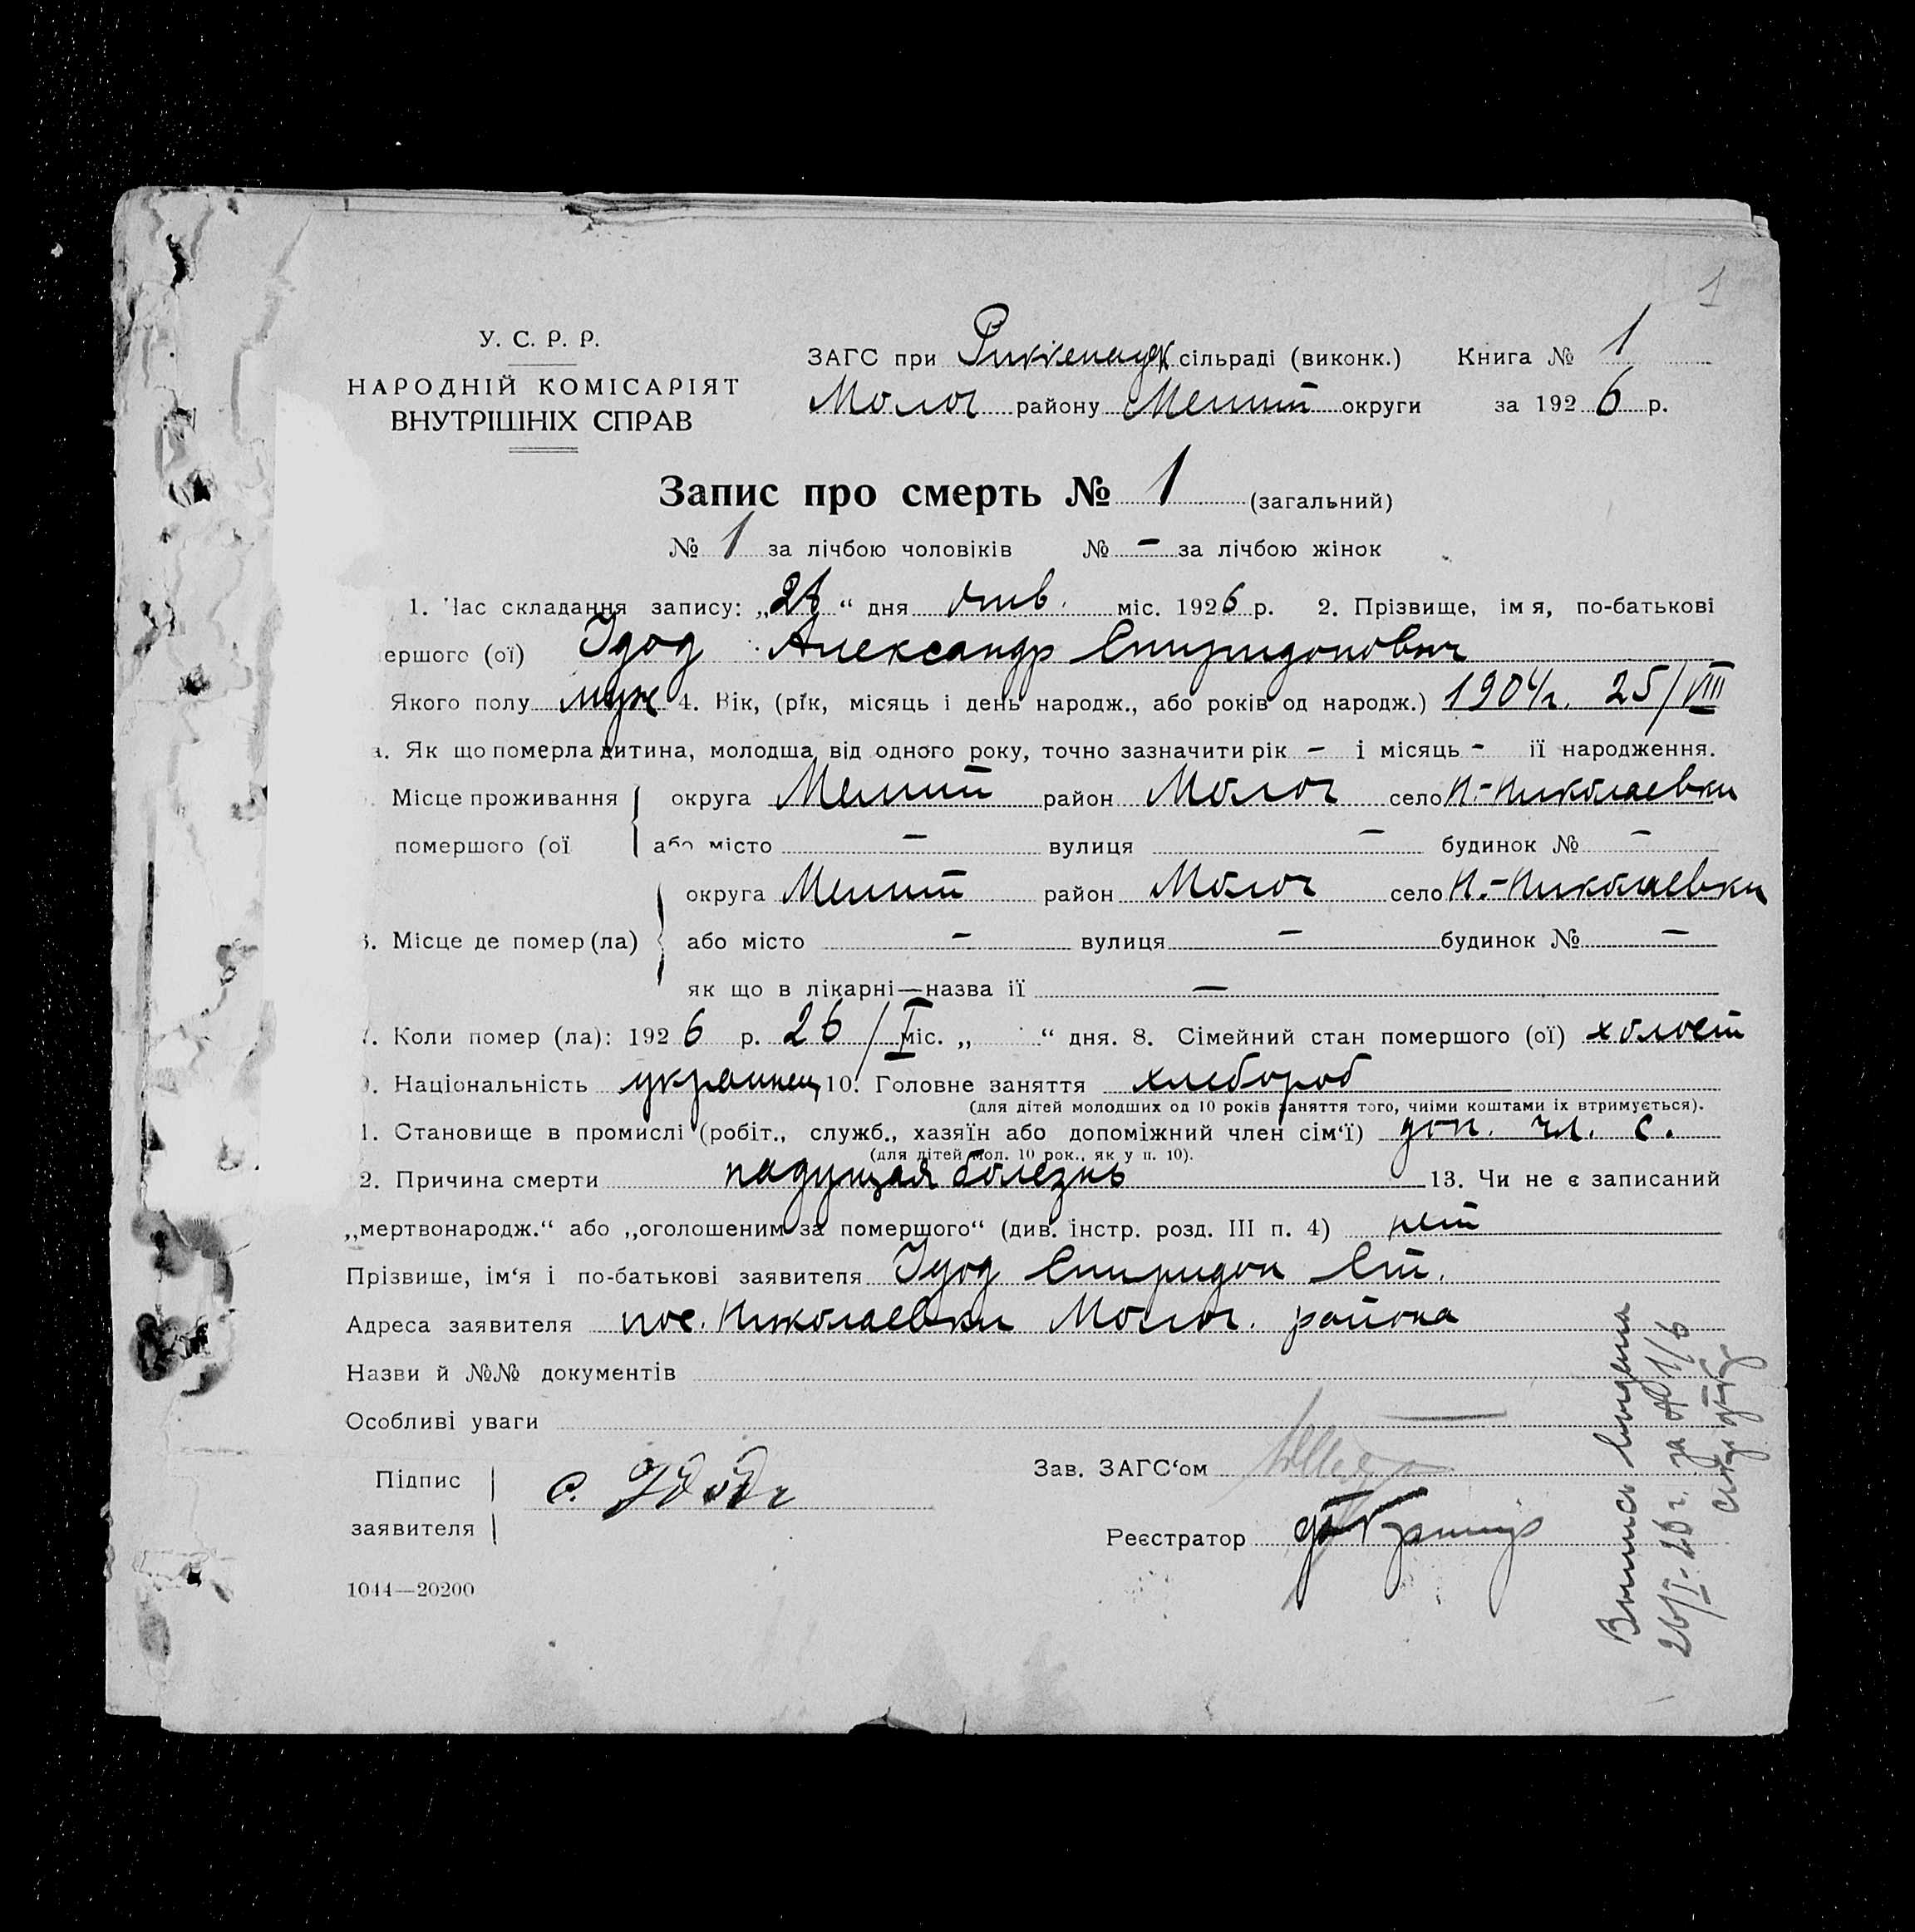 1
У. С. Р. Р.
НАРОДНІЙ КОМІСАРІЯТ
ВНУТРІШНІХ СПРАВ
ЗАГС при Риккенаусk сільраді (виконк.) Книга № 1
Молоч району Мелит округи за 192 6 р.
Запис про смерть № 1 (загальний)
№ 1 за лічбою чоловіків № – за лічбою жінок
1. Час складання запису: „ “ дня янв. міс. 1926 р. 2. Прізвище, імя, по-батькові
ершого (ої) Удод Александр Спиридонович
Якого полу муж 4. Вік, (рік, місяць і день народж., або років од народж.) 1904 г. 25/VIII
а. Як що померла дитина, молодша від одного року, точно зазначити рік – і місяць – її народження.
Місце проживання округа Мелит район Молоч село Н.-Николаевки
помершого (ої або місто – вулиця – будинок № –
округа Мелит район Молоч село Н.-Николаевки
6. Місце де помер (ла) або місто – вулиця – будинок № –
як що в лікарні—назва її –
7. Коли помер (ла): 192 6 р. 26/I міс. „ “ дня. 8. Сімейний стан помершого (ої) холост
9. Національність украинец 10. Головне заняття хлебороб
(для дітей молодших од 10 років заняття того, чиїми коштами їх втримується).
1. Становище в промислі (робіт., служб., хазяїн або допоміжний член сім‘ї) доп. чл. с.
(для дітей мол. 10 рок., як у п. 10).
2. Причина смерти падущая болезнь 13. Чи не є записаний
„мертвонародж.“ або „оголошеним за помершого“ (див. інстр. розд. III п. 4) нет
Прізвише, ім‘я і по-батькові заявителя Удод Спиридон Ст.
Адреса заявителя пос. Николаевки Молоч. района
Назви й №№ документів
Особливі уваги –
Підпис
заявителя
С. Удод
Зав. ЗАГС‘ом
Реєстратор
1044—20200
Выпись выдана
26/I-26 г. за № 1/6